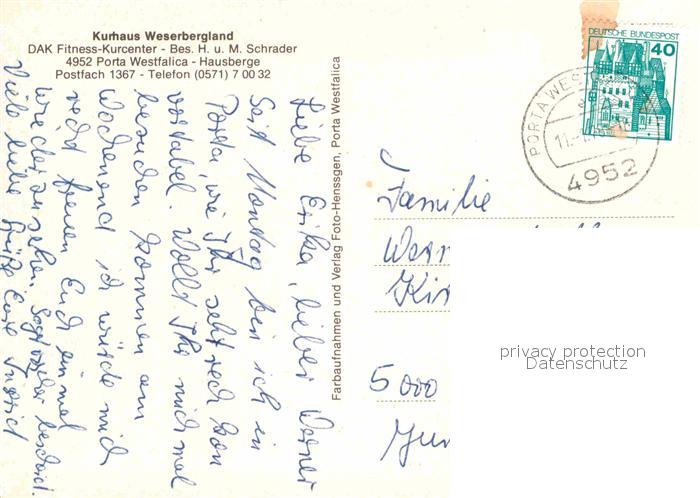 Kurhaus Weserbergland
DAK Fitness-Kurcenter - Bes. H. u. M. Schrader
4952 Porta Westfalica - Hausberge
Postfach 1367 - Telefon (0571) 7 00 32
Liebe Erika, lieber Werner
Seit Montag bin ich in
Porta, wie Ihr seht recht kom
fortabel. Wollt Ihr mich mal
besuchen kommen am
Wochenend ich würde mich
recht freuen Euch einmal
wieder zu sehen. Sagt vorher bescheid.
Viele liebe Grüße Eure Ingrid
Farbaufnahmen und Verlag Foto-Henssgen, Porta Westfalica
DEUTSCHE BUNDESPOST
40
PORTA WEST
4952
Familie
Wer
Kir
5000
privacy protection
Datenschutz